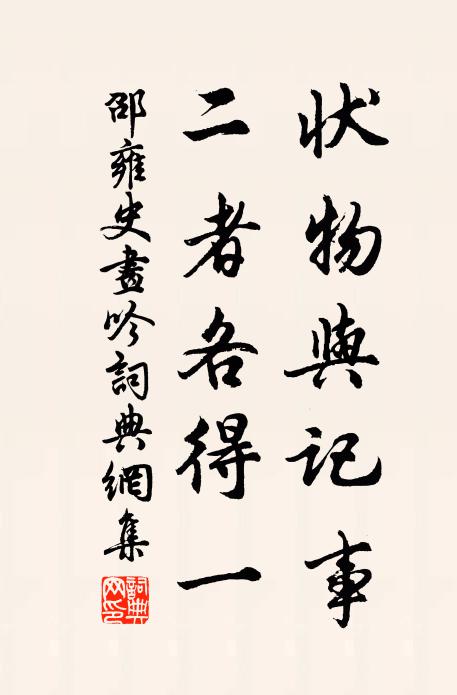 狀物與記事
二者各得一
邵雍史畫吟詞典網集
詞典
網印